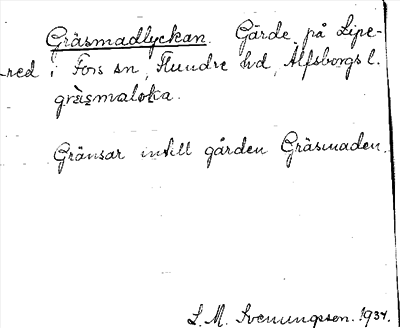 Gräsmadlyckan. Gärde på Lipe-
red i Fors sn, Flundre hd, Älfsborgs l.
gräsmaloka.
Gränsar intill gården Gräsmaden.
S. M. Svenungsson. 1934.